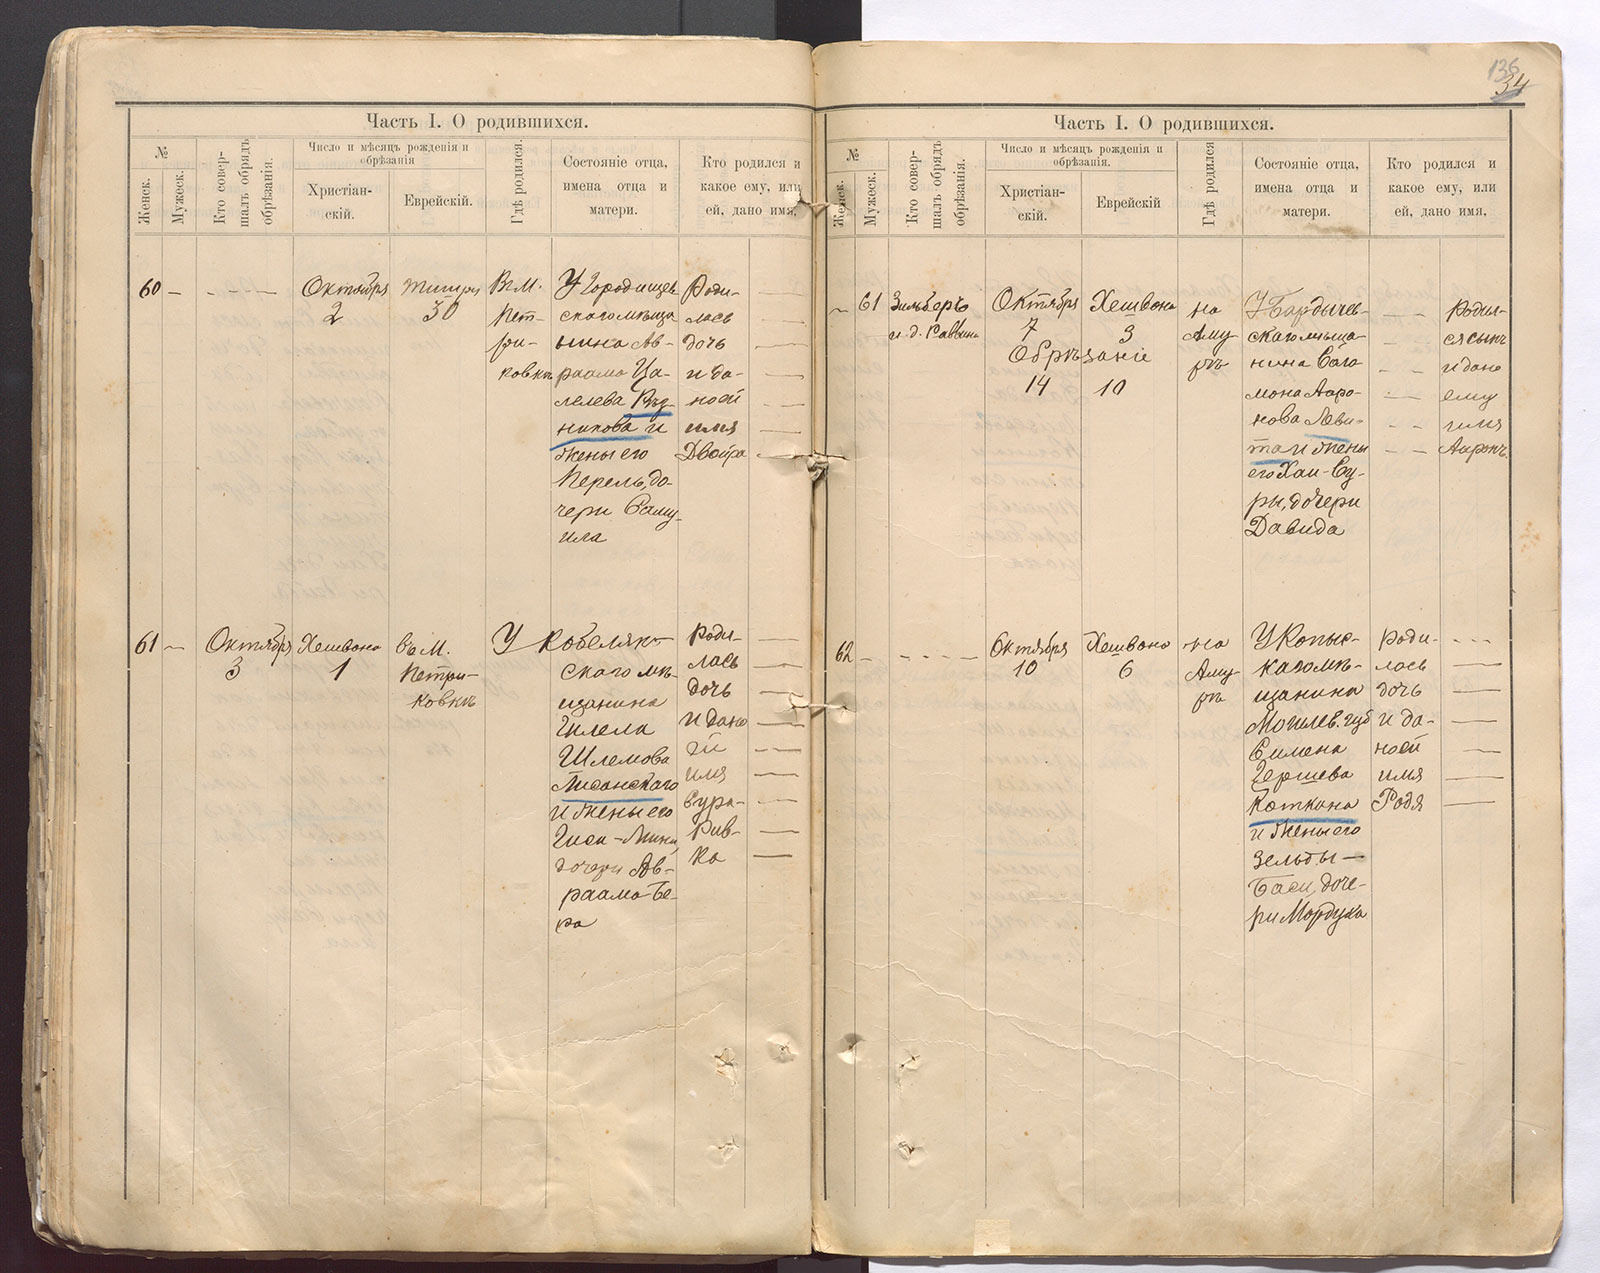 136
34
Часть I. О родившихся.
№
Женск.
Мужеск.
Кто совер-
шалъ обрядъ
обрѣзанія.
Число и мѣсяцъ рожденія и
обрѣзанія
Христіан-
скій.
Еврейскій.
Гдѣ родился.
Состояніе отца,
имена отца и
матери.
Кто родился и
какое ему, или
ей, дано имя,
60
Октября
2
Тишри
30
Въ М.
Пет-
ри-
ковкѣ
У Городищен
скаго мѣща
нина Ав-
раама Ца-
лелева
никова и
жены его
Перель, до-
чери Саму-
ила
Роди-
лась
дочь
и да-
но ей
имя
Двойра
61
Октября
3
Хешвона
1
въ М.
Петри-
ковкѣ
У Кобеляк-
скаго мѣ-
щанина
Гилела
Шлемова
Писанскаго
и жены его
дочери Ав-
раама Бе-
ра
Роди-
лась
дочь
и дано
ей
имя
Сура-
Рив-
ка
Часть I. О родившихся.
№
Женск.
Мужеск.
Кто совер-
шалъ обрядъ
обрѣзанія.
Число и мѣсяцъ рожденія и
обрѣзанія.
Христіан-
скій.
Еврейскій
Гдѣ родился
Состояніе отца,
имена отца и
матери.
Кто родился и
какое ему, или
ей, дано имя,
61
Зильберъ
и. д. Раввина
Октября
7
Хешвона
3
Обрѣзаніе
14 10
на
Аму-
рѣ
У Бардычев-
скаго мѣща-
нина Соло
мона Ааро-
нова Леви-
та и жены
его Хаи-Су-
ры, дочери
Давида
Родил-
ся сынъ
и дано
ему
имя
Ааронъ
62
Октября
10
Хешвона
6
на
Аму-
рѣ
У Копыс-
каго мѣ-
щанина
Могилев. губ
Симена
Гершева
Коткана
и жены его
Зельды-
Баси, доче-
ри Мордуха
роди-
лась
дочь
и да-
но ей
имя
Родя